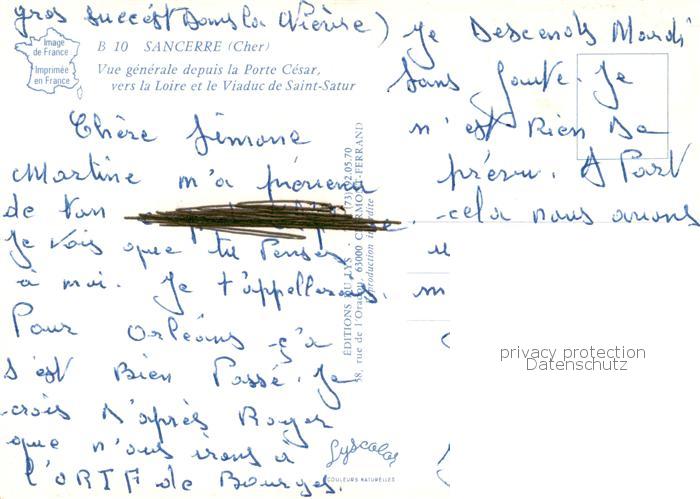 gros succést Dans la Nièvre)
Image
de France
Imprimée
en France
B 10 SANCERRE (Cher)
Vue générale depuis la Porte César,
vers la Loire et le Viaduc de Saint-Satur
Chère Simone
Martine m'a prévenu
de ton
Je vois que tu Penses
à moi. Je t'appellerais.
Pour Orléans ç'a
s'est Bien Passé. Je
crois d'après Roger
que n'ous irons à
l'ORTF de Bourges.
ÉDITIONS DU LYS
58, rue de l'Oradou, 63000
reproduction interdite
Lyscolor
COULEURS NATURELLES
Je Descends Mardi
Sans faute. Je
n'est Rien De
prévu. A Part
cela nous avons
privacy protection
Datenschutz